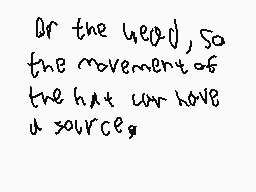 Or the head, so
the movement of
the hat can have
a source.